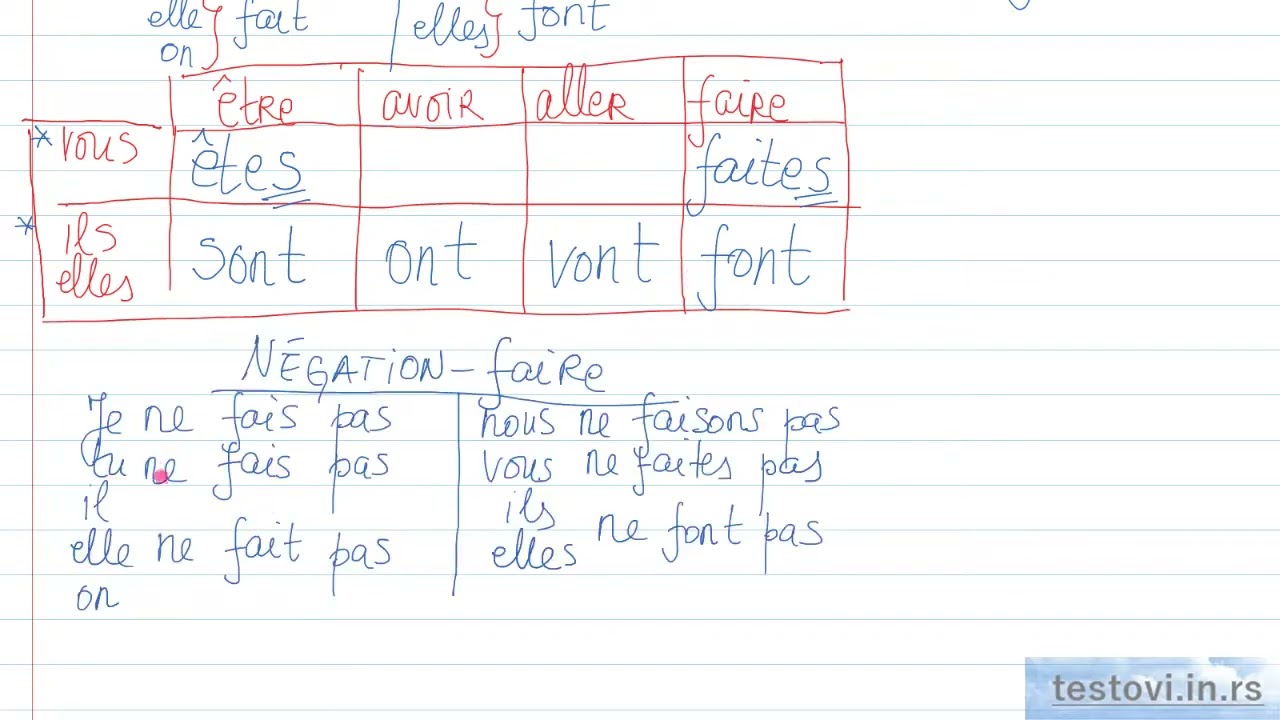 elle } fait | elles } font
on
être avoir aller faire
* vous êtes faites
* ils
elles sont ont vont font
NÉGATION - faire
Je ne fais pas nous ne faisons pas
tu ne fais pas vous ne faites pas
il ils
elle ne fait pas elles ne font pas
on
testovi.in.rs